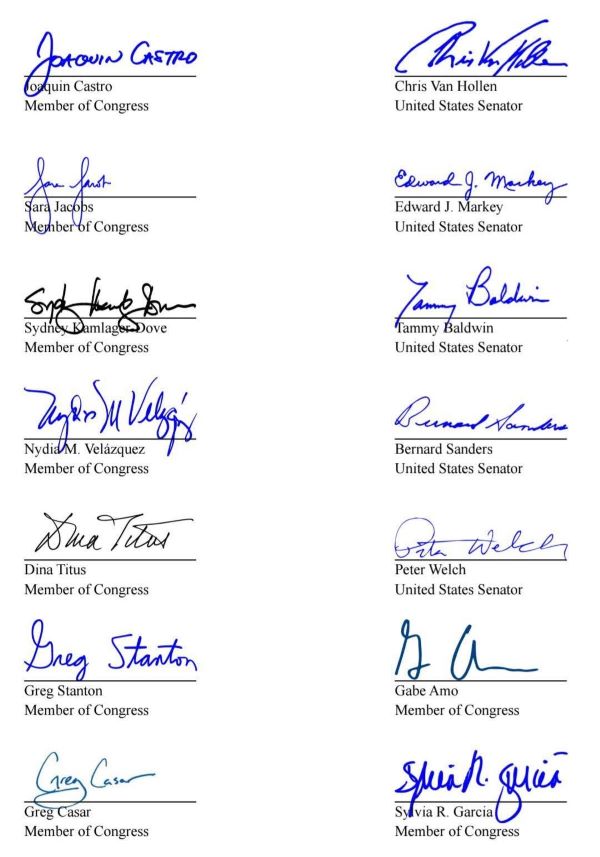 JOAQUIN CASTRO
Joaquin Castro
Member of Congress
Chris Van Hollen
Chris Van Hollen
United States Senator
Sara Jacobs
Member of Congress
Edward J. Markey
Edward J. Markey
United States Senator
Sydney Kamlager-Dove
Member of Congress
Tammy Baldwin
Tammy Baldwin
United States Senator
Nydia M Velázquez
Nydia M. Velázquez
Member of Congress
Bernard Sanders
Bernard Sanders
United States Senator
Dina Titus
Dina Titus
Member of Congress
Peter Welch
Peter Welch
United States Senator
Greg Stanton
Greg Stanton
Member of Congress
G A
Gabe Amo
Member of Congress
Greg Casar
Greg Casar
Member of Congress
Sylvia R. Garcia
Sylvia R. Garcia
Member of Congress